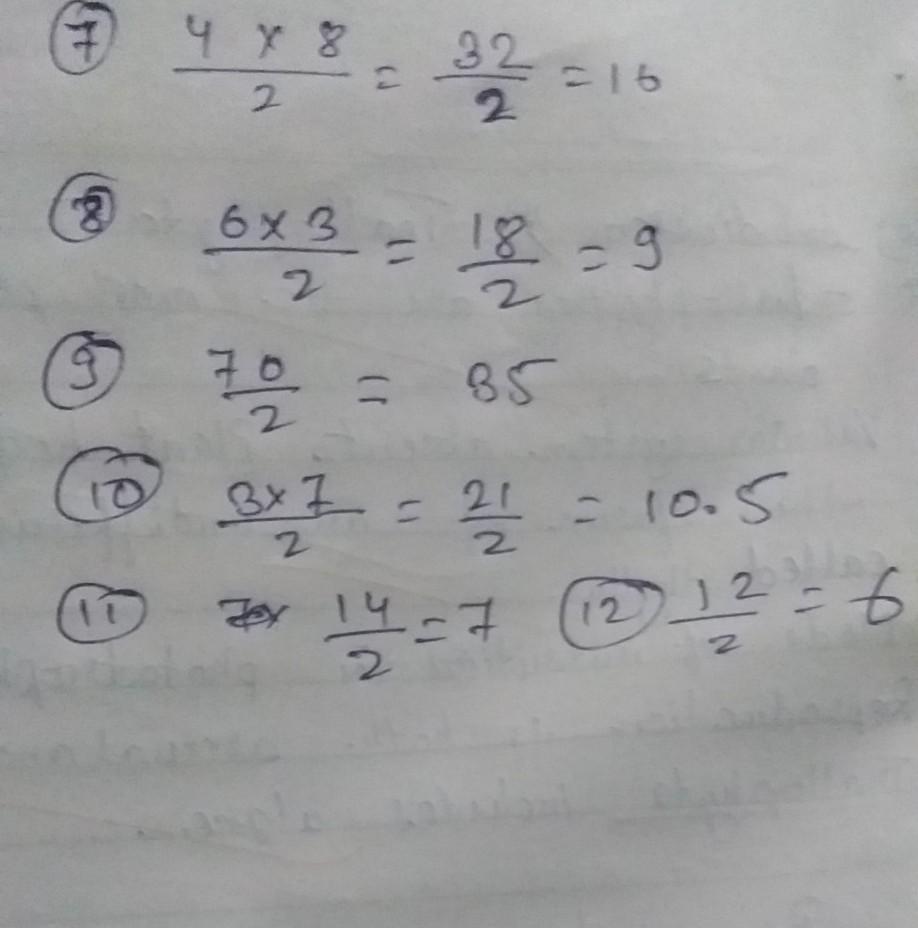 ⑦ 4 × 8 / 2 = 32 / 2 = 16
⑧ 6 × 3 / 2 = 18 / 2 = 9
⑨ 70 / 2 = 35
⑩ 3 × 7 / 2 = 21 / 2 = 10.5
⑪ 14 / 2 = 7 ⑫ 12 / 2 = 6